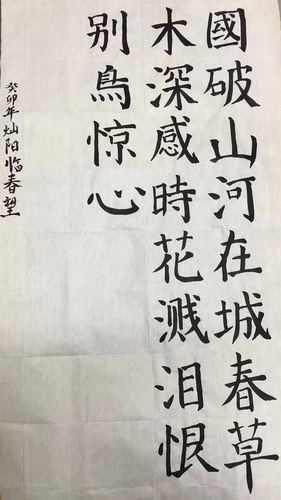 國破山河在城春草
木深感時花溅泪恨
别鳥惊心
癸卯年灿阳临春望